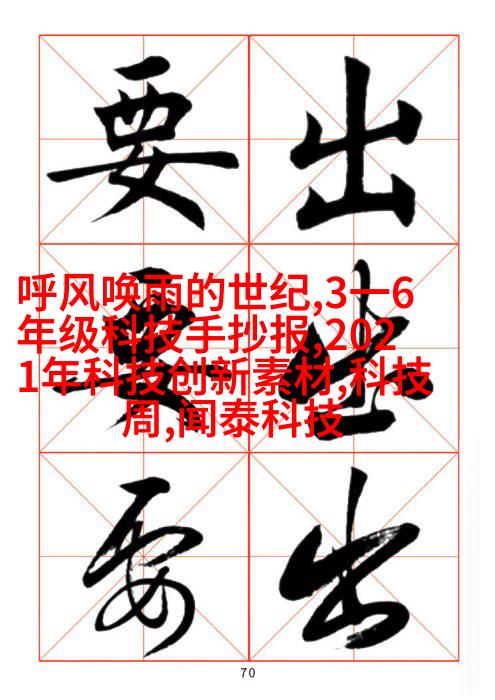 要 出
呼风唤雨的世纪,3一6
年级科技手抄报,202
1年科技创新素材,科技
周,闻泰科技
要 出
要 出
70